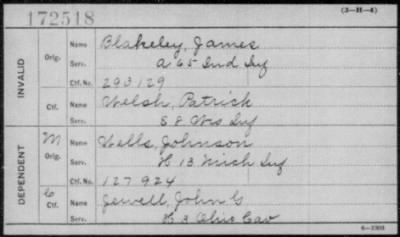 172518
(3—H—4)
INVALID
Orig.
Name Blakeley, James
Serv. A 65 Ind Inf
Ctf. No. 293129
Ctf.
Name Welsh, Patrick
Serv. 5 & Wis Inf
DEPENDENT
M Orig.
Name Wells, Johnson
Serv. H 13 Mich Inf
Ctf. No. 127924
C Ctf.
Name Jewell, John G
Serv. H 3 Ohio Cav